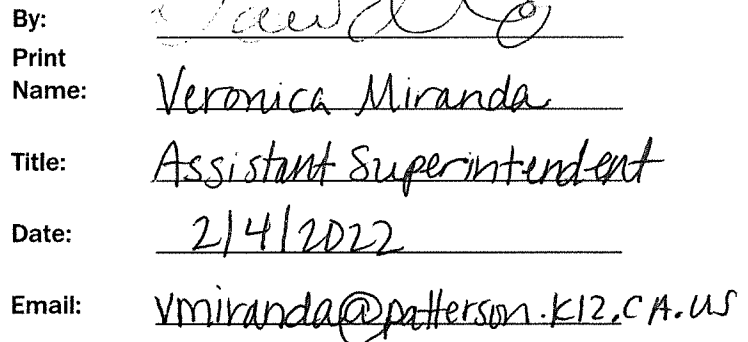 By:
Print
Name: Veronica Miranda
Title: Assistant Superintendent
Date: 2/4/2022
Email: vmiranda@patterson.k12.CA.us